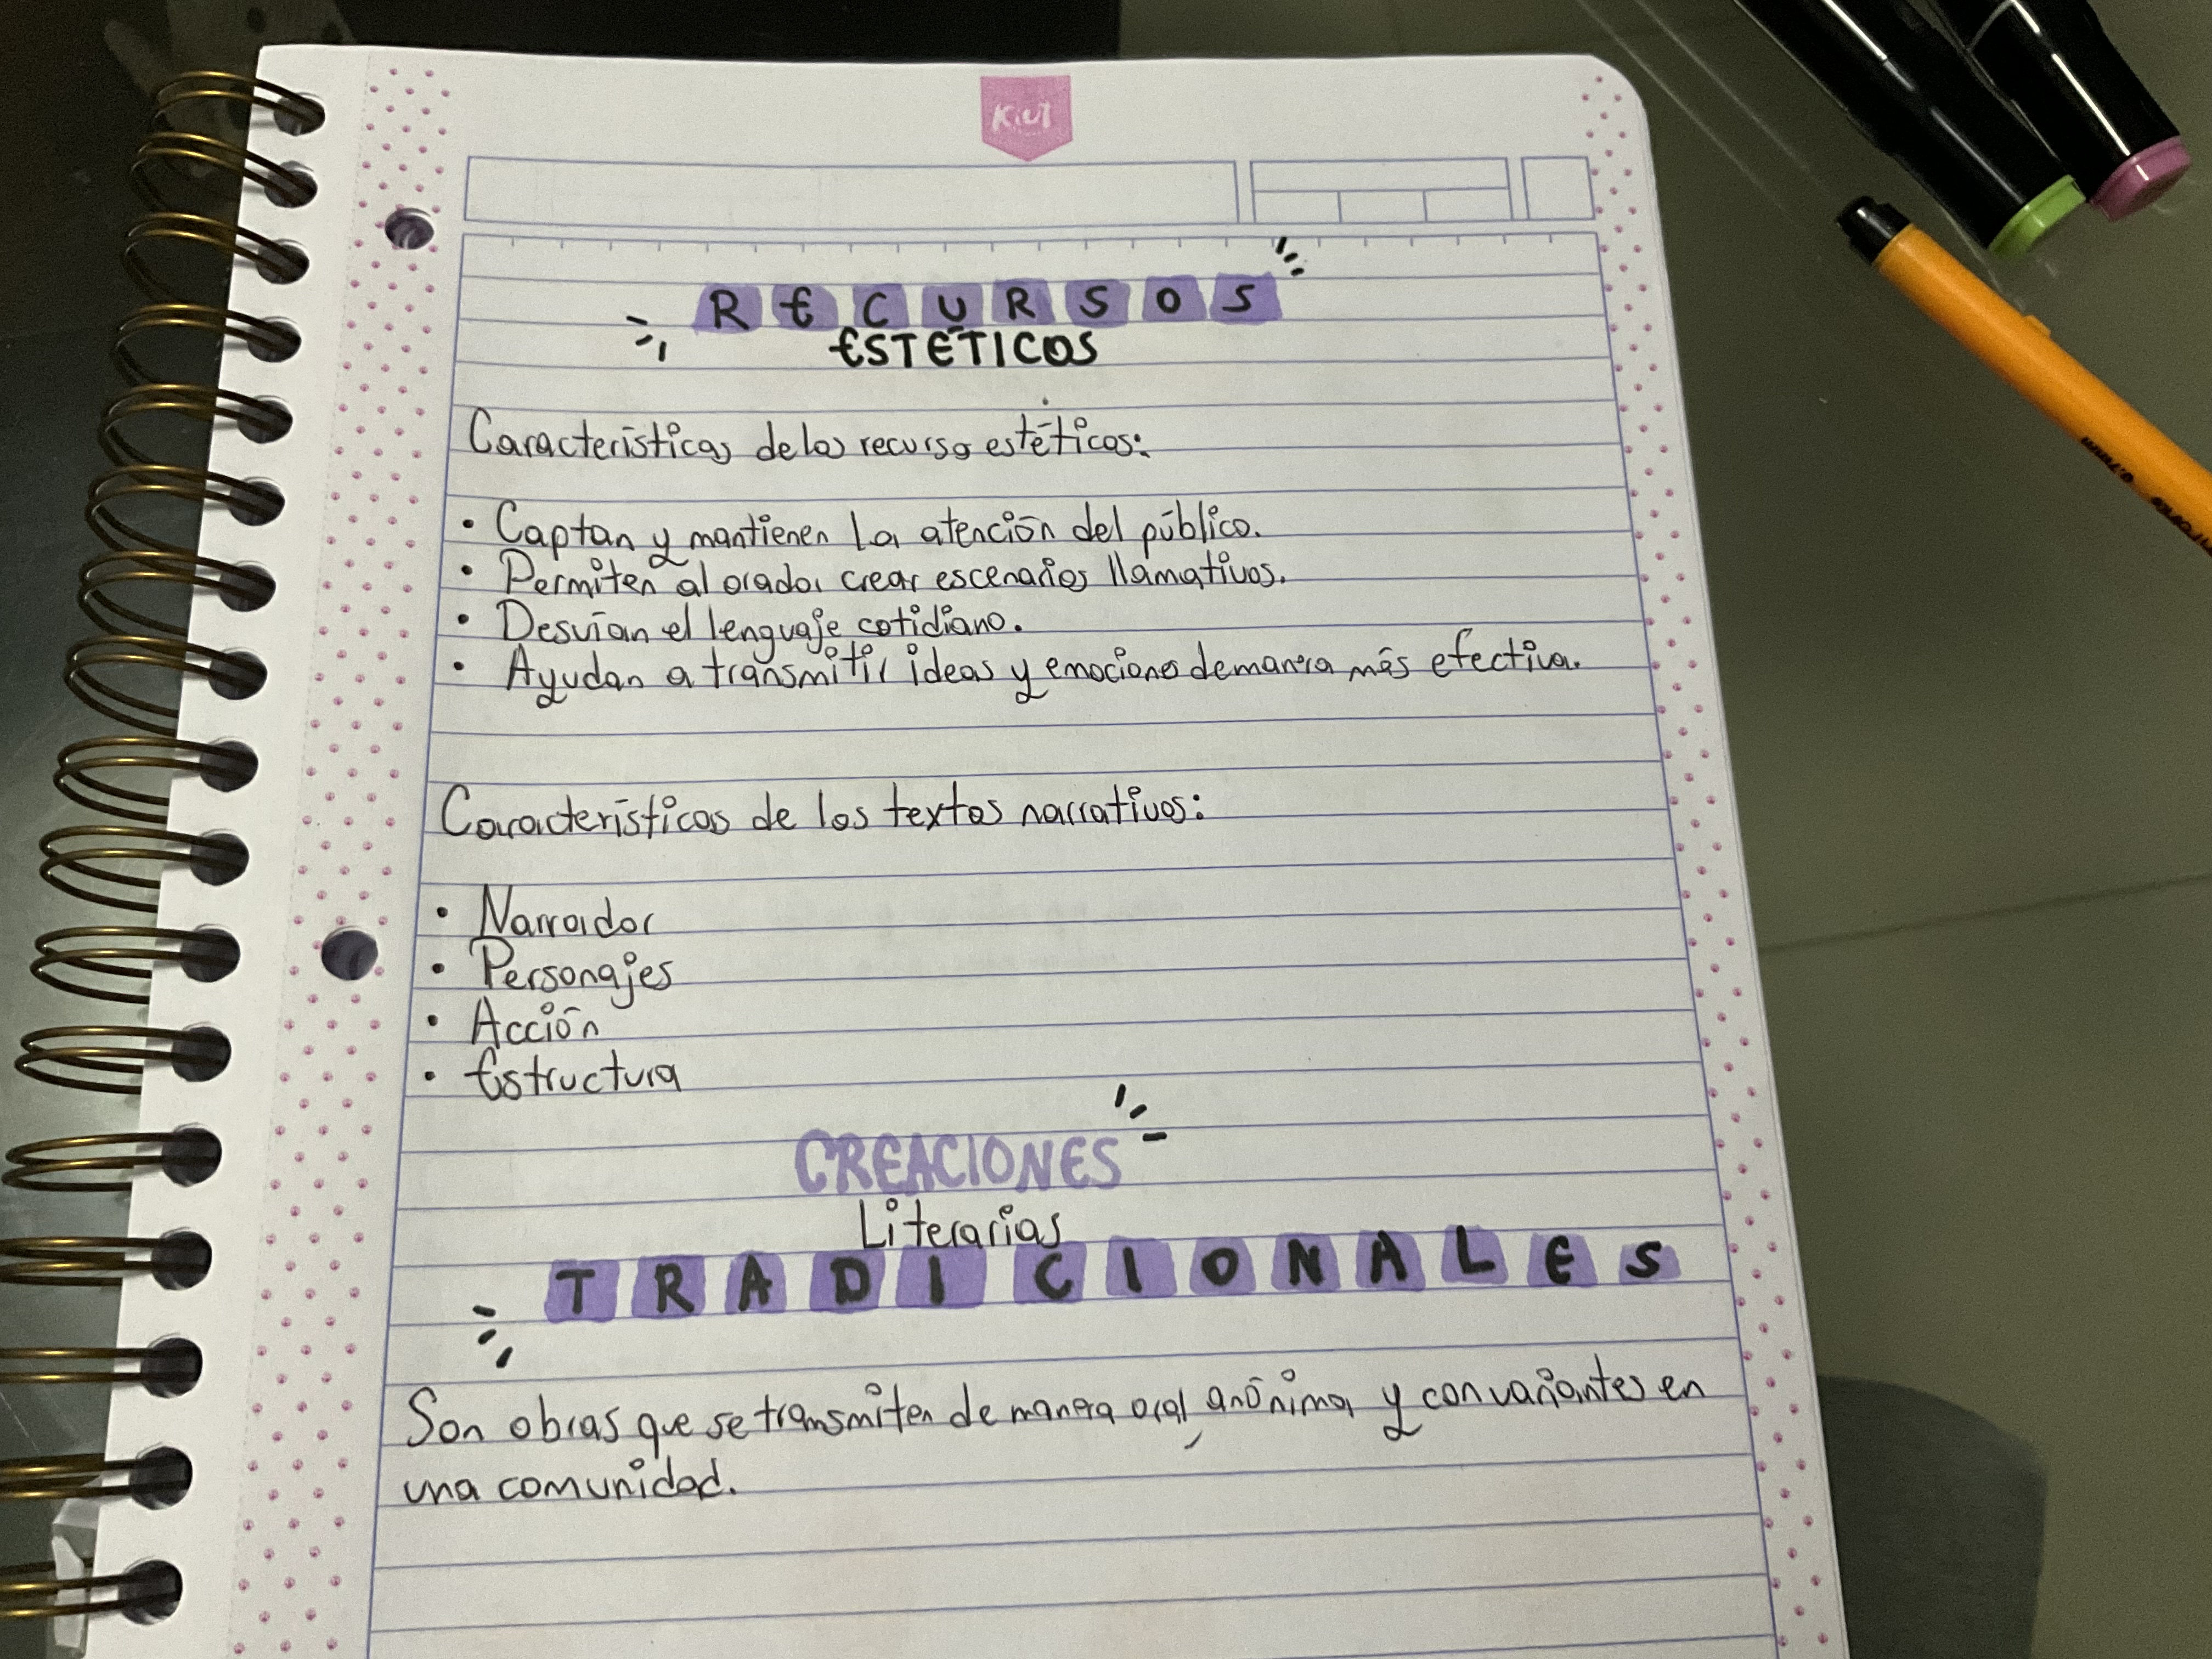 Kiut
RECURSOS
ESTÉTICOS
Características de los recurso estéticos:
• Captan y mantienen la atención del público.
• Permiten al orador crear escenarios llamativos.
• Desvían el lenguaje cotidiano.
• Ayudan a transmitir ideas y emociones de manera más efectiva.
Características de los textos narrativos:
• Narrador
• Personajes
• Acción
• Estructura
CREACIONES
Literarias
TRADICIONALES
Son obras que se transmiten de manera oral, anónima y con variantes en
una comunidad.